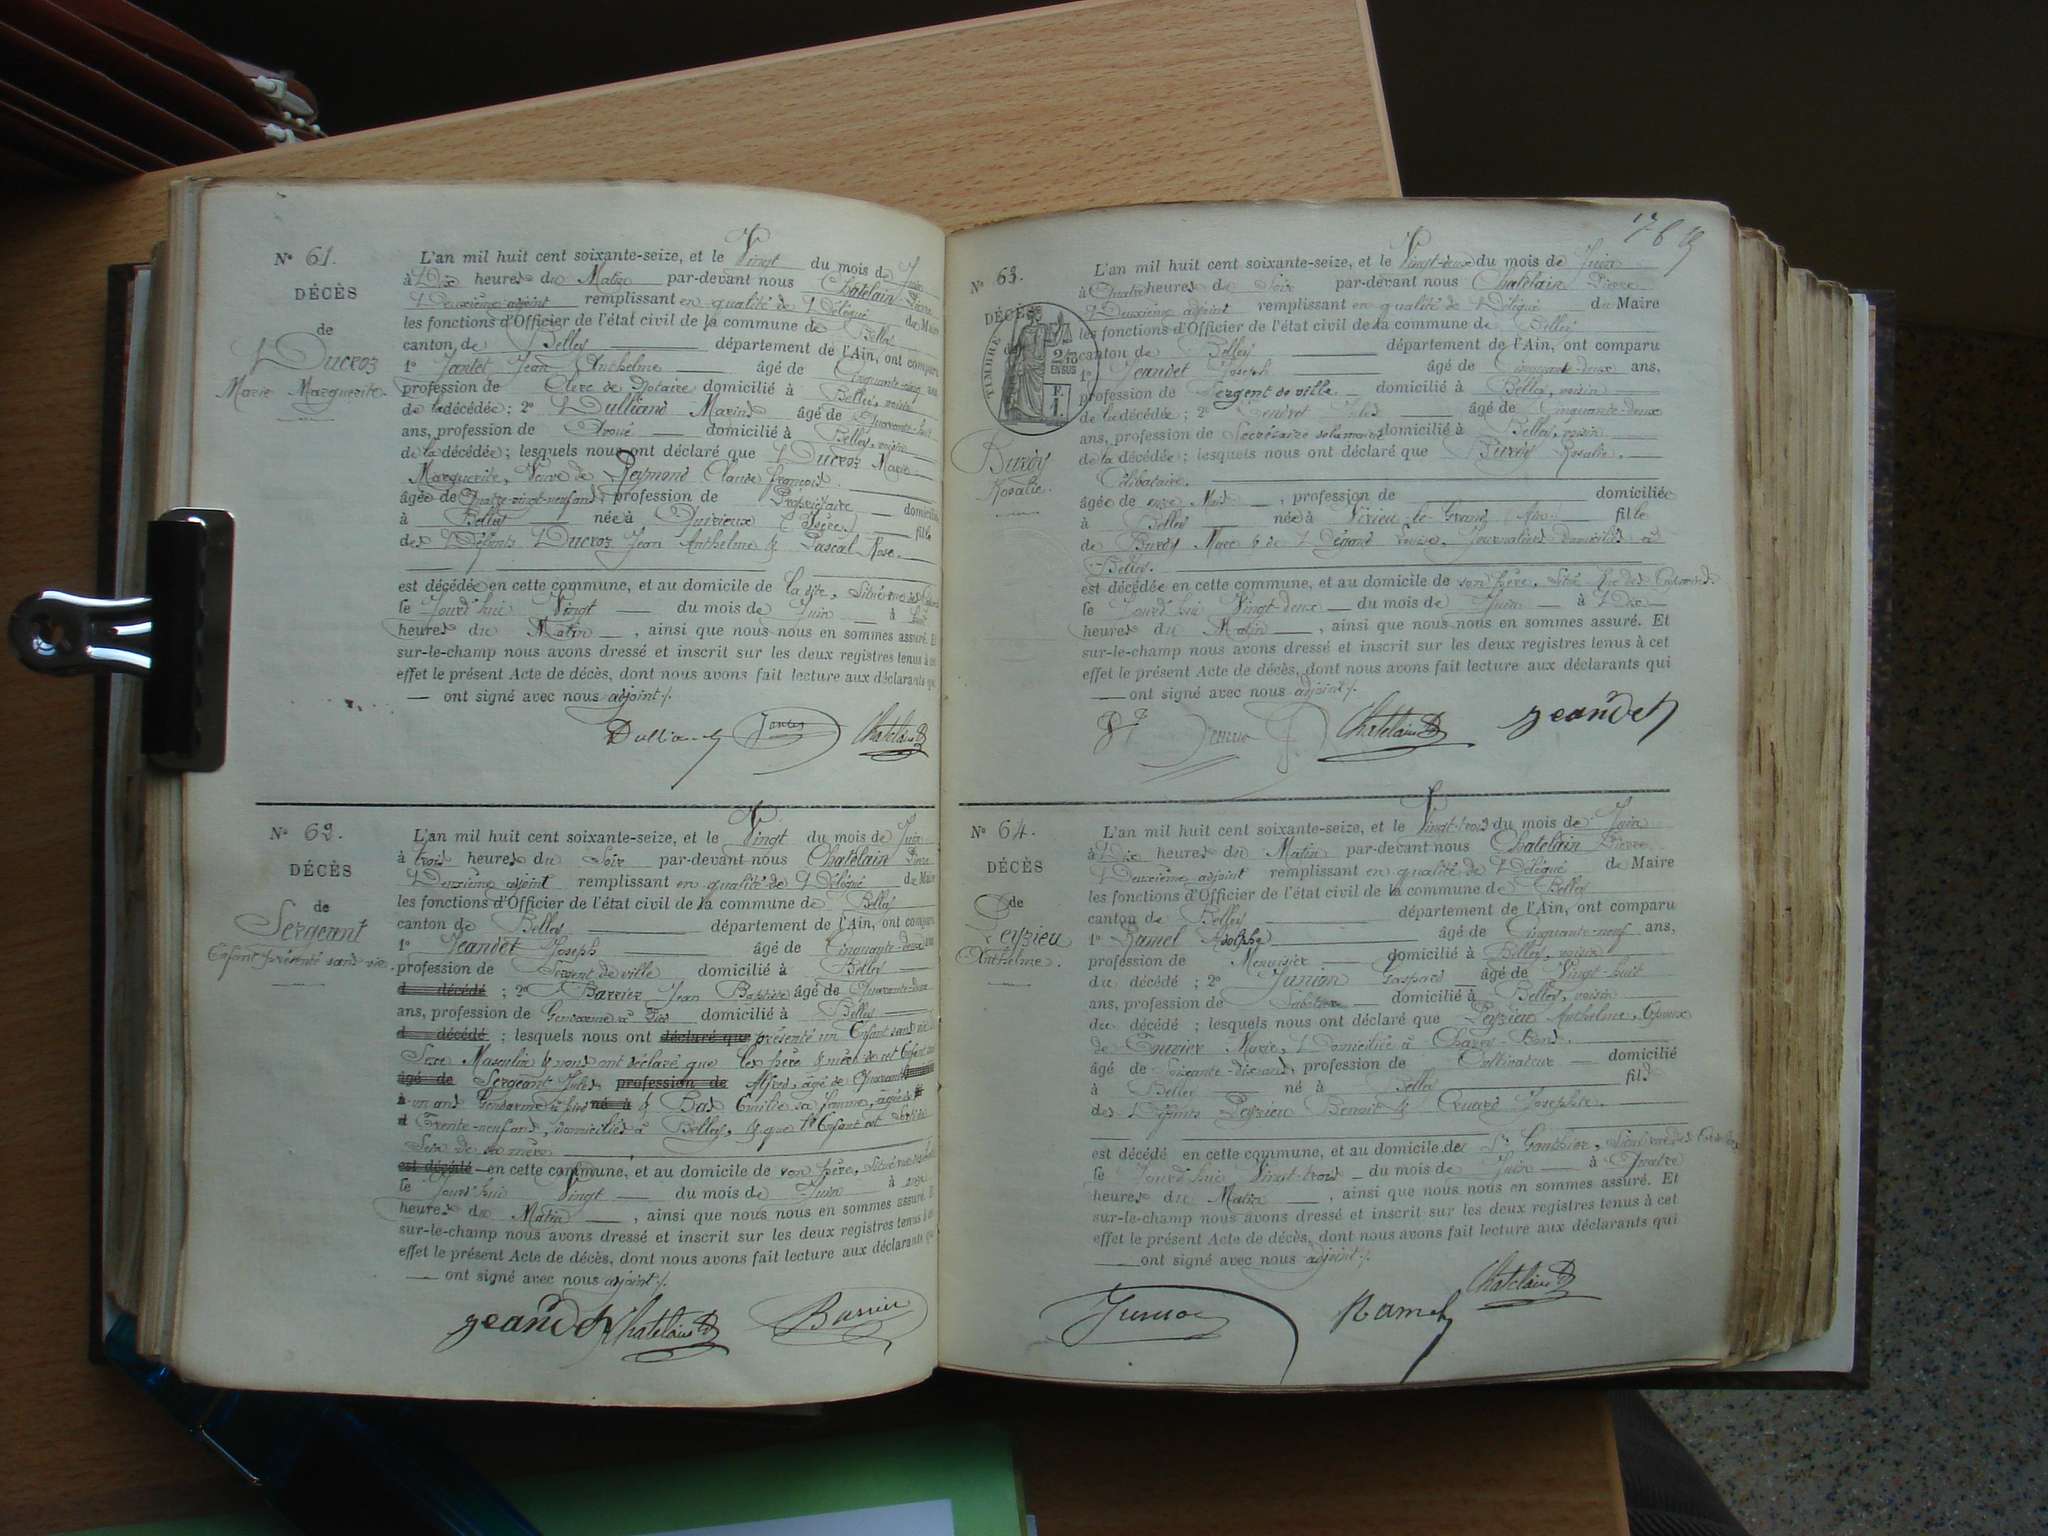 Nº 61.
DÉCÈS
de
Ducroz
Marie Marguerite.
L'an mil huit cent soixante-seize, et le Vingt du mois de Juin
à Dix heures du Matin par-devant nous Chatelain Pierre
Deuxième adjoint remplissant en qualité de Délégué du Maire
les fonctions d'Officier de l'état civil de la commune de Belley
canton de Belley département de l'Ain, ont comparu
1º Jantet Jean Anthelme âgé de Cinquante-cinq ans
profession de Clerc de Notaire domicilié à Belley, voisin
de la décédée ; 2º Dulliand Marins âgé de Quarante-huit
ans, profession de Avoué domicilié à Belley, voisin
de la décédée ; lesquels nous ont déclaré que Ducroz Marie
Marguerite, Veuve de Reymond Claude françois.
âgée de Quatre-vingt-neuf ans, profession de Propriétaire domiciliée
à Belley née à Quirieux (Isère) fille
des Défunts Ducroz Jean Anthelme & Pascal Rose.
est décédée en cette commune, et au domicile de la dite, Situé
le Jourd'hui Vingt du mois de Juin à
heures du Matin, ainsi que nous nous en sommes assuré. Et
sur-le-champ nous avons dressé et inscrit sur les deux registres tenus à cet
effet le présent Acte de décès, dont nous avons fait lecture aux déclarants qui
— ont signé avec nous adjoint ./.
Dulliand Jantet Chatelain
Nº 62.
DÉCÈS
de
Sergeant
Enfant présenté sans vie.
L'an mil huit cent soixante-seize, et le Vingt du mois de Juin
à trois heures du Soir par-devant nous Chatelain Pierre
Deuxième adjoint remplissant en qualité de Délégué du Maire
les fonctions d'Officier de l'état civil de la commune de Belley
canton de Belley département de l'Ain, ont comparu
1º Jeandet Joseph âgé de Cinquante-deux ans
profession de Sergent de ville domicilié à Belley
d décédé ; 2º Barrier Jean Baptiste âgé de Quarante-deux
ans, profession de Gendarme à Pied domicilié à Belley
d décédé ; lesquels nous ont déclaré que présenté un Enfant sans vie du
Sexe Masculin & nous ont déclaré que les père & mère de cet Enfant sont
âgé de Sergeant Jules profession de Alfred, âgé de Quarante
à un ans Gendarme à pied né à & Bas Emilie sa femme, âgée de
d Trente-neuf ans, domiciliés à Belley, & que l'Enfant est sorti du
Sein de sa mère
est décédé en cette commune, et au domicile de son père, Situé
le Jourd'hui Vingt du mois de Juin à onze
heures du Matin, ainsi que nous nous en sommes assuré. Et
sur-le-champ nous avons dressé et inscrit sur les deux registres tenus à cet
effet le présent Acte de décès, dont nous avons fait lecture aux déclarants qui
— ont signé avec nous adjoint ./.
Jeandet Chatelain Barrier
Nº 63.
DÉCÈS
TIMBRE
2/10
EN SUS
F.
1.
Burdy
Rosalie.
L'an mil huit cent soixante-seize, et le Vingt-deux du mois de Juin
à Quatre heures du Soir par-devant nous Chatelain Pierre
Deuxième adjoint remplissant en qualité de Délégué du Maire
les fonctions d'Officier de l'état civil de la commune de Belley
canton de Belley département de l'Ain, ont comparu
1º Jeandet Joseph âgé de Cinquante-deux ans,
profession de Sergent de ville. domicilié à Belley, voisin
de la décédée ; 2º Jules âgé de Cinquante-deux
ans, profession de Secrétaire de la mairie domicilié à Belley, voisin
de la décédée ; lesquels nous ont déclaré que Burdy Rosalie.
Célibataire.
âgée de onze Mois, profession de domiciliée
à Belley née à Virieu-le-Grand (Ain) fille
de Burdy Marc & de Louise, Journaliers Domiciliés à
Belley.
est décédée en cette commune, et au domicile de son père, Situé Rue des
le Jourd'hui Vingt-deux du mois de Juin à Dix
heures du Matin, ainsi que nous nous en sommes assuré. Et
sur-le-champ nous avons dressé et inscrit sur les deux registres tenus à cet
effet le présent Acte de décès, dont nous avons fait lecture aux déclarants qui
— ont signé avec nous adjoint ./.
Chatelain Jeandet
Nº 64.
DÉCÈS
de
Peyzieu
Anthelme.
L'an mil huit cent soixante-seize, et le Vingt-trois du mois de Juin
à Dix heures du Matin par-devant nous Chatelain Pierre
Deuxième adjoint remplissant en qualité de Délégué de Maire
les fonctions d'Officier de l'état civil de la commune de Belley
canton de Belley département de l'Ain, ont comparu
1º Ramel Adolphe âgé de Cinquante-neuf ans,
profession de Menuisier domicilié à Belley, voisin
du décédé ; 2º Junion Gaspard âgé de Vingt-huit
ans, profession de domicilié à Belley, voisin
du décédé ; lesquels nous ont déclaré que Peyzieu Anthelme, Epoux
de Marie, Domiciliée à
âgé de Soixante-dix ans, profession de Cultivateur domicilié
à Belley né à Belley fils
des Défunts Peyzieu Benoit & Josephte.
est décédé en cette commune, et au domicile de Sr Gonthier, Situé rue des
le Jourd'hui Vingt-trois du mois de Juin à Quatre
heures du Matin, ainsi que nous nous en sommes assuré. Et
sur-le-champ nous avons dressé et inscrit sur les deux registres tenus à cet
effet le présent Acte de décès, dont nous avons fait lecture aux déclarants qui
— ont signé avec nous adjoint ./.
Chatelain
Ramel